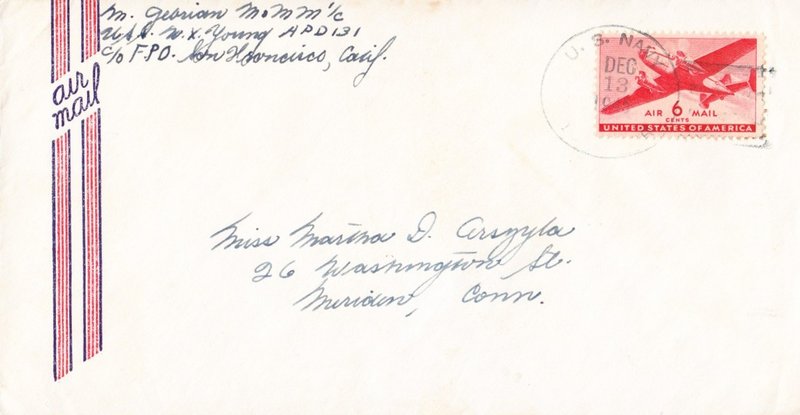 M. Gebrian MoMM 1/c
U.S.S. W.X. Young APD 131
c/o F.P.O. San Francisco, Calif.
air
mail
U. S. NAVY
DEC
13
AIR 6 MAIL
CENTS
UNITED STATES OF AMERICA
Miss Martha D.
26 Washington St.
Meriden, Conn.